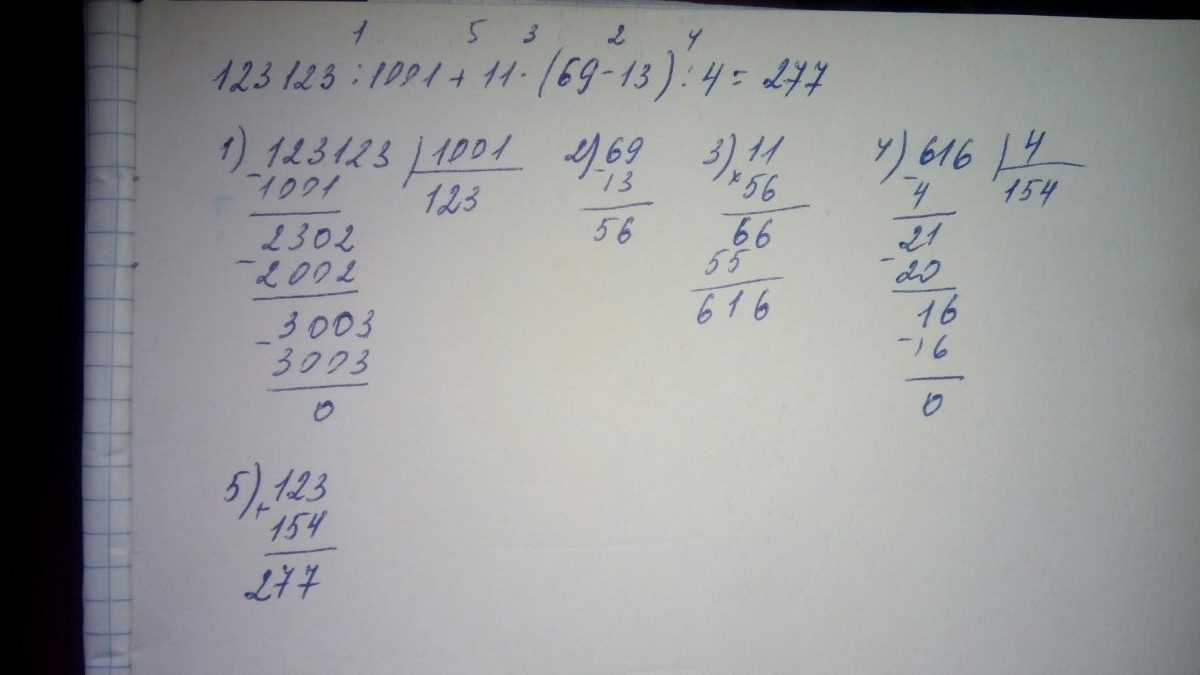 1 5 3 2 4
123123 : 1001 + 11 · (69 - 13) : 4 = 277
1) - 123123 | 1001
1001
123
2302
- 2002
3003
- 3003
0
2) 69
- 13
56
3) 11
× 56
66
55
616
4) - 616 | 4
4
154
21
- 20
16
- 16
0
5) + 123
154
277